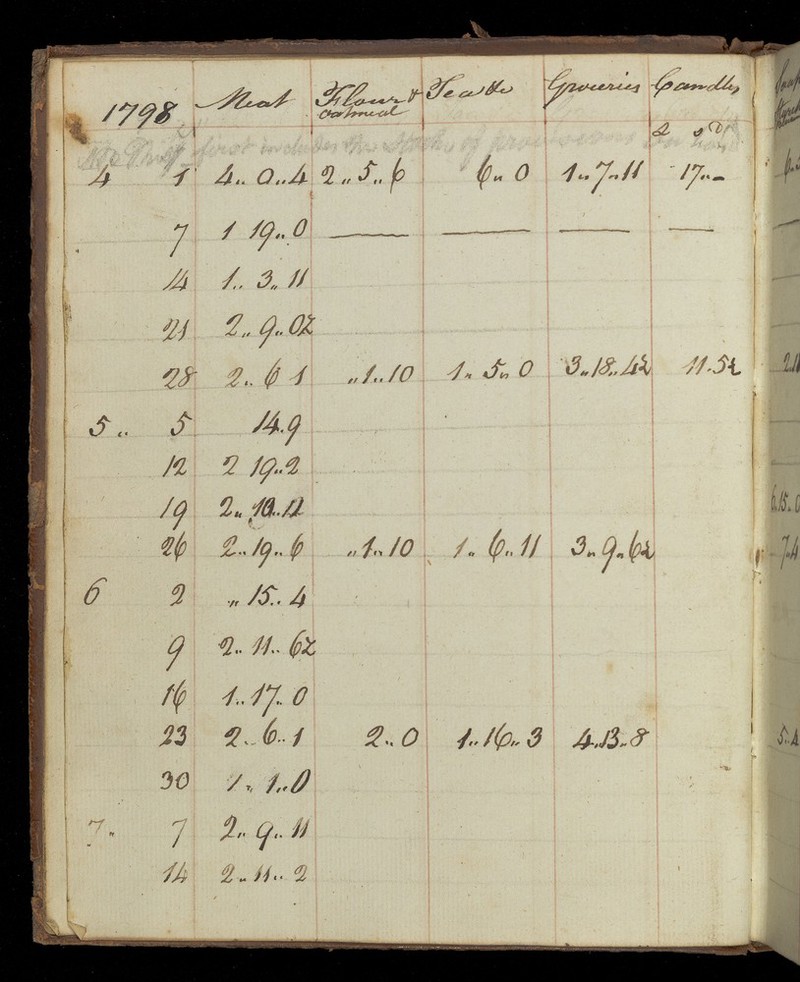 1798 Meat Flour & Oatmeal Tea &c Groceries Candles
first includes the Stock of provisions
4 1 4 „ 0 „ 4 2 „ 5 „ 6 6 „ 0 1 „ 7 „ 11 17 „ -
7 1 19 „ 0 — — — —
14 1 „ 3 „ 11
21 2 „ 9 „ 0½
28 2 „ 6 1 „ 1 „ 10 1 „ 5 „ 0 3 „ 18 „ 4½ 11 „ 5½
5 „ 5 14 „ 9
12 2 19 „ 2
19 2 „
26 2 „ 19 „ 6 „ 1 „ 10 1 „ 6 „ 11 3 „ 9 „ 6½
6 2 „ 15 „ 4
9 2 „ 11 „ 6½
16 1 „ 17 „ 0
23 2 „ 6 „ 1 2 „ 0 1 „ 16 „ 3 4 „ 13 „ 8
30 1 „ 1 „ 0
7 „ 7 2 „ 9 „ 11
14 2 „ 11 „ 2